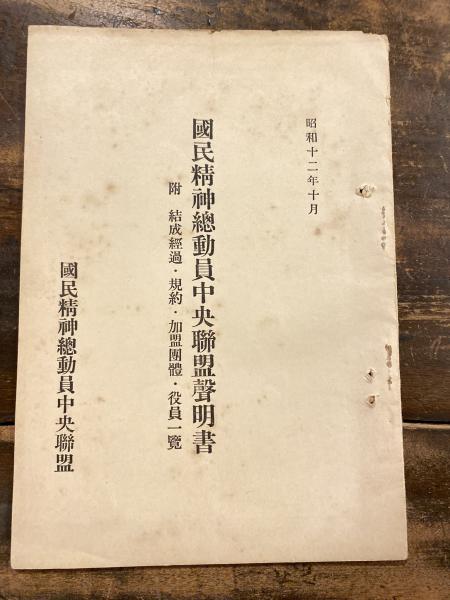 昭和十二年十月
國民精神總動員中央聯盟聲明書
附 結成經過・規約・加盟團體・役員一覽
國民精神總動員中央聯盟